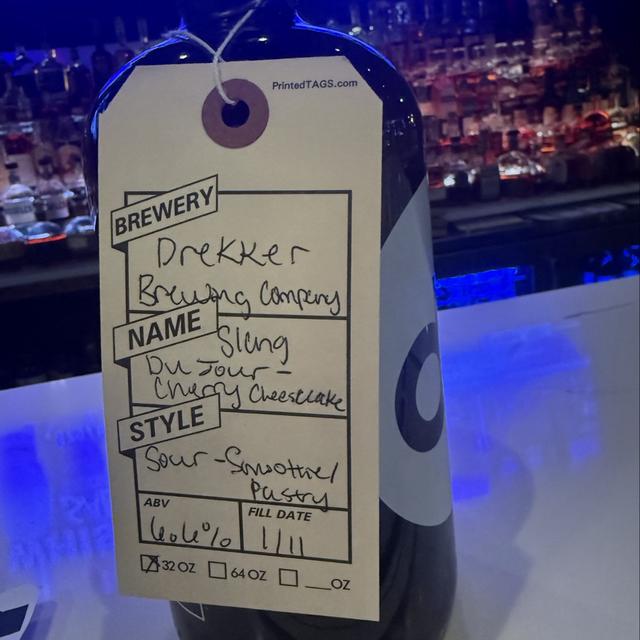 PrintedTAGS.com
BREWERY
Drekker
Brewing Company
NAME
Slang
Du Jour -
Cherry Cheesecake
STYLE
Sour - Smoothie/
Pastry
ABV
6.6%
FILL DATE
1/11
32 OZ 64 OZ ___OZ